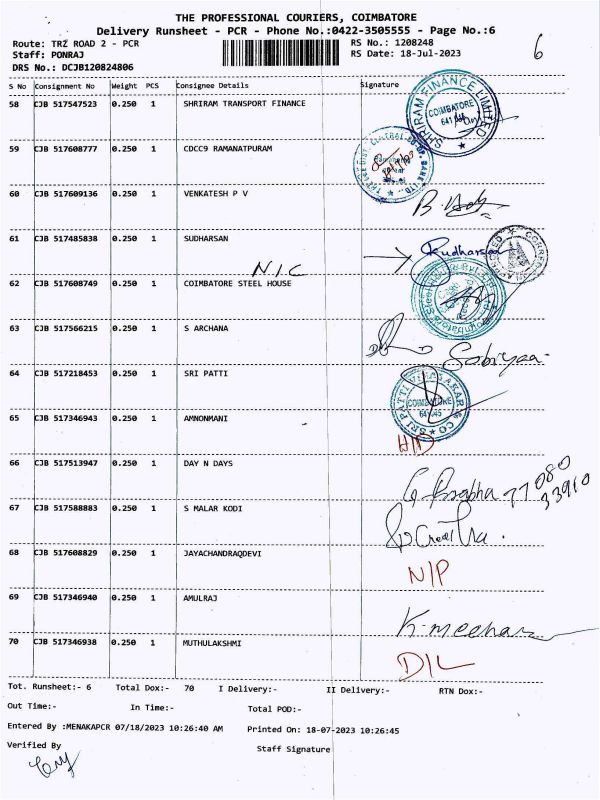 THE PROFESSIONAL COURIERS, COIMBATORE
Delivery Runsheet - PCR - Phone No.:0422-3505555 - Page No.:6
Route: TRZ ROAD 2 - PCR RS No.: 1208248 6
Staff: PONRAJ RS Date: 18-Jul-2023
DRS No.: DCJB120824806
S No Consignment No Weight PCS Consignee Details Signature
58 CJB 517547523 0.250 1 SHRIRAM TRANSPORT FINANCE
SHRIRAM FINANCE LIMITED COIMBATORE
59 CJB 517608777 0.250 1 CDCC9 RAMANATPURAM
60 CJB 517609136 0.250 1 VENKATESH P V
61 CJB 517485838 0.250 1 SUDHARSAN Sudharsan
N/C
62 CJB 517608749 0.250 1 COIMBATORE STEEL HOUSE
63 CJB 517566215 0.250 1 S ARCHANA
64 CJB 517218453 0.250 1 SRI PATTI
COIMBATORE
65 CJB 517346943 0.250 1 AMNONMANI
H/D
66 CJB 517513947 0.250 1 DAY N DAYS
G Prabha 77080
33910
67 CJB 517588883 0.250 1 S MALAR KODI
68 CJB 517608829 0.250 1 JAYACHANDRAQDEVI
N/P
69 CJB 517346940 0.250 1 AMULRAJ
70 CJB 517346938 0.250 1 MUTHULAKSHMI
D/L
Tot. Runsheet:- 6 Total Dox:- 70 I Delivery:- II Delivery:- RTN Dox:-
Out Time:- In Time:- Total POD:-
Entered By :MENAKAPCR 07/18/2023 10:26:40 AM Printed On: 18-07-2023 10:26:45
Verified By Staff Signature